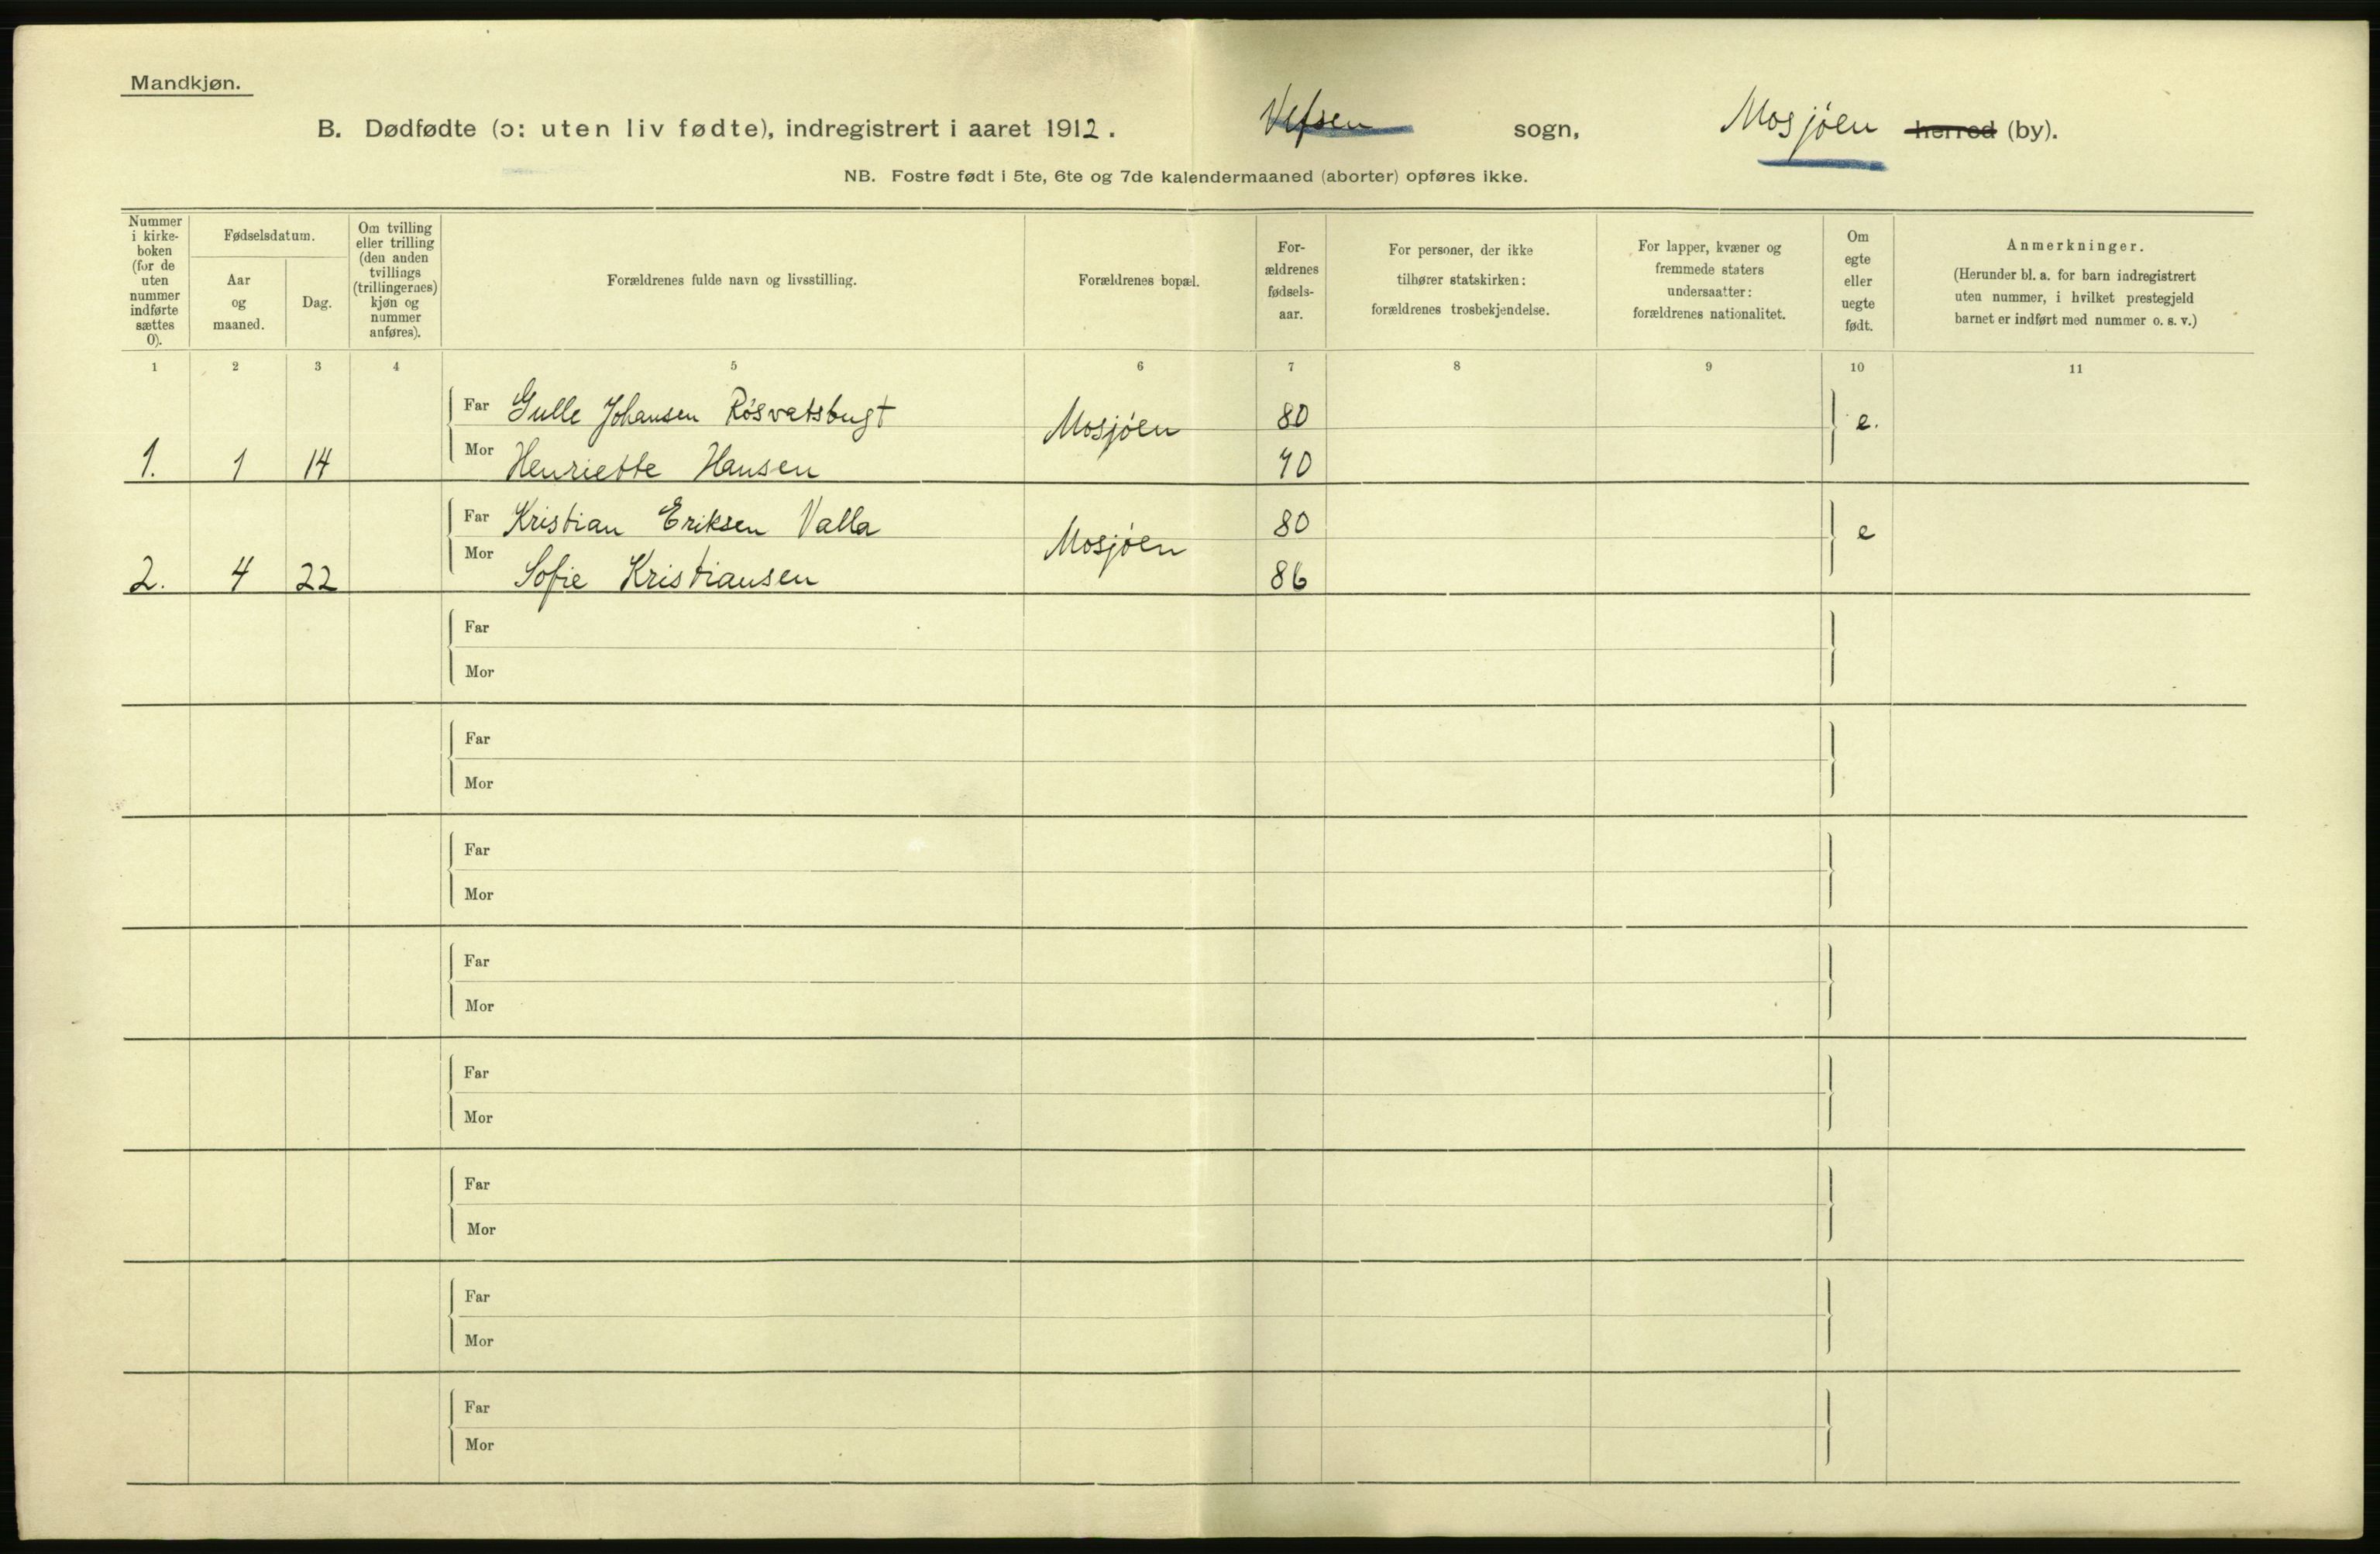 Mandkjøn.
B. Dødfødte (ɔ: uten liv fødte), indregistrert i aaret 1912. Vefsen sogn, Mosjøen herred (by).
NB. Fostre født i 5te, 6te og 7de kalendermaaned (aborter) opføres ikke.
Nummer i kirke-boken (for de uten nummer indførte sættes 0).
Fødselsdatum.
Aar og maaned.
Dag.
Om tvilling eller trilling (den anden tvillings (trillingernes) kjøn og nummer anføres).
Forældrenes fulde navn og livsstilling.
Forældrenes bopæl.
For-ældrenes fødsels-aar.
For personer, der ikke tilhører statskirken: forældrenes trosbekjendelse.
For lapper, kvæner og fremmede staters undersaatter: forældrenes nationalitet.
Om egte eller uegte født.
Anmerkninger.
(Herunder bl. a. for barn indregistrert uten nummer, i hvilket prestegjeld barnet er indført med nummer o. s. v.)
1 2 3 4 5 6 7 8 9 10 11
Far Gulle Johansen Røsvatsbugt Mosjøen 80 e.
1. 1 14 Mor Henriette Hansen 70
Far Kristian Eriksen Valla Mosjøen 80 e
2. 4 22 Mor Sofie Kristiansen 86
Far
Mor
Far
Mor
Far
Mor
Far
Mor
Far
Mor
Far
Mor
Far
Mor
Far
Mor